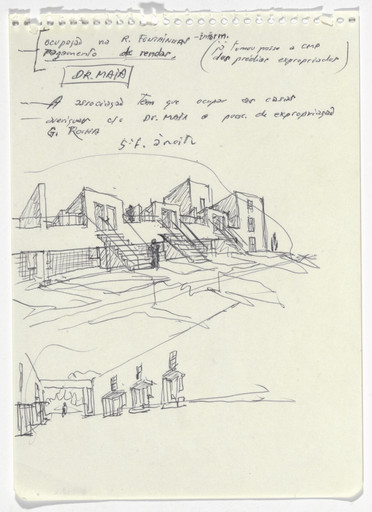 ocupação na R. - Inform.
pagamento de rendas. (já tomou posse a CMP
dos prédios expropriados)
DR. MAIA
- A associação tem que ocupar as casas
- averiguar c/o DR. MAIA o proc. de expropriação
G. ROCHA
5ª f. à noite